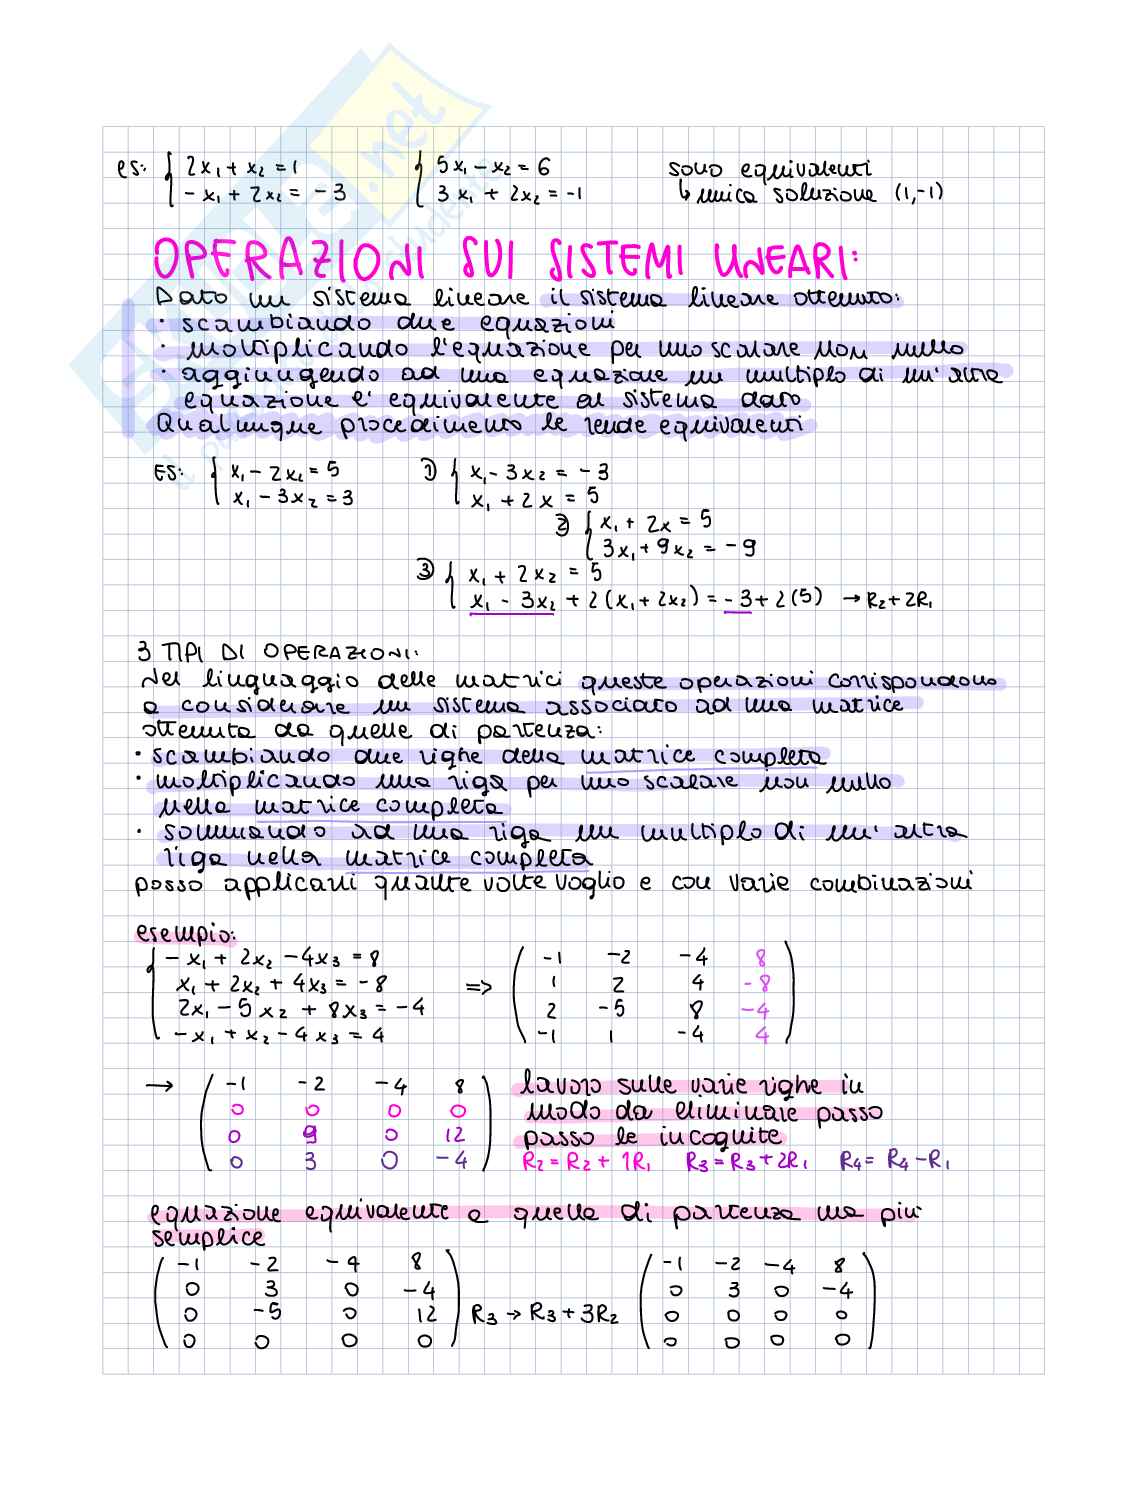 es: { 2x₁ + x₂ = 1   { 5x₁ - x₂ = 6   sono equivalenti
- x₁ + 2x₂ = -3   3x₁ + 2x₂ = -1   ↳ unica soluzione (1,-1)
OPERAZIONI SUI SISTEMI LINEARI:
Dato un sistema lineare il sistema lineare ottenuto:
· scambiando due equazioni
· moltiplicando l'equazione per uno scalare non nullo
· aggiungendo ad una equazione un multiplo di un'altra
equazione e' equivalente al sistema dato
Qualunque procedimento le rende equivalenti
ES: { x₁ - 2x₂ = 5   1) { x₁ - 3x₂ = -3
x₁ - 3x₂ = 3   x₁ + 2x = 5
2) { x₁ + 2x = 5
3x₁ + 9x₂ = -9
3) { x₁ + 2x₂ = 5
x₁ - 3x₂ + 2(x₁ + 2x₂) = -3 + 2(5) → R₂ + 2R₁
3 TIPI DI OPERAZIONI:
Nel linguaggio delle matrici queste operazioni corrispondono
a considerare un sistema associato ad una matrice
ottenuta da quelle di partenza:
· scambiando due righe della matrice completa
· moltiplicando una riga per uno scalare non nullo
nella matrice completa
· sommando ad una riga un multiplo di un'altra
riga nella matrice completa
posso applicarli quante volte voglio e con varie combinazioni
esempio:
{ - x₁ + 2x₂ - 4x₃ = 8   ( -1 -2 -4 8 )
x₁ + 2x₂ + 4x₃ = -8   =>   1 2 4 -8
2x₁ - 5x₂ + 8x₃ = -4   2 -5 8 -4
- x₁ + x₂ - 4x₃ = 4   -1 1 -4 4
→ ( -1 -2 -4 8 )   lavoro sulle varie righe in
0 0 0 0   modo da eliminare passo
0 9 0 12   passo le incognite
0 3 0 -4   R₂ = R₂ + 1R₁   R₃ = R₃ + 2R₁   R₄ = R₄ - R₁
equazione equivalente a quella di partenza ma piu'
semplice
( -1 -2 -4 8 )   ( -1 -2 -4 8 )
0 3 0 -4   0 3 0 -4
0 -5 0 12   R₃ → R₃ + 3R₂   0 0 0 0
0 0 0 0   0 0 0 0